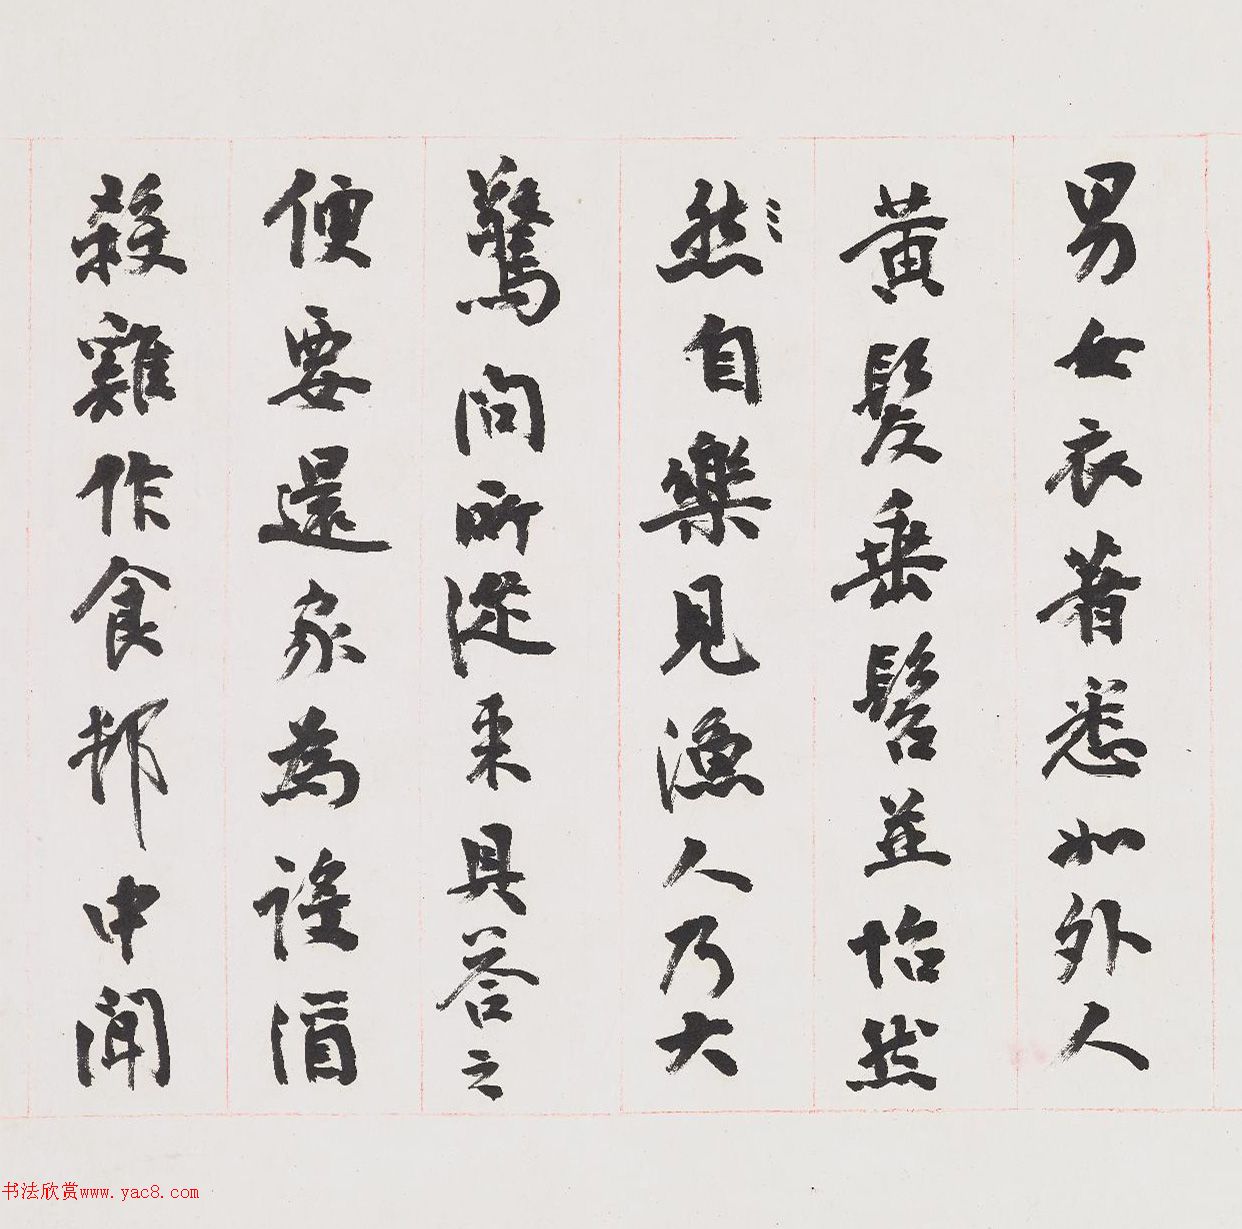 男女衣著悉如外人
黃髮垂髫並怡然
然自樂見漁人乃大
驚問所從来具荅之
便要還家為設酒
殺雞作食邨中聞
书法欣赏www.yac8.com